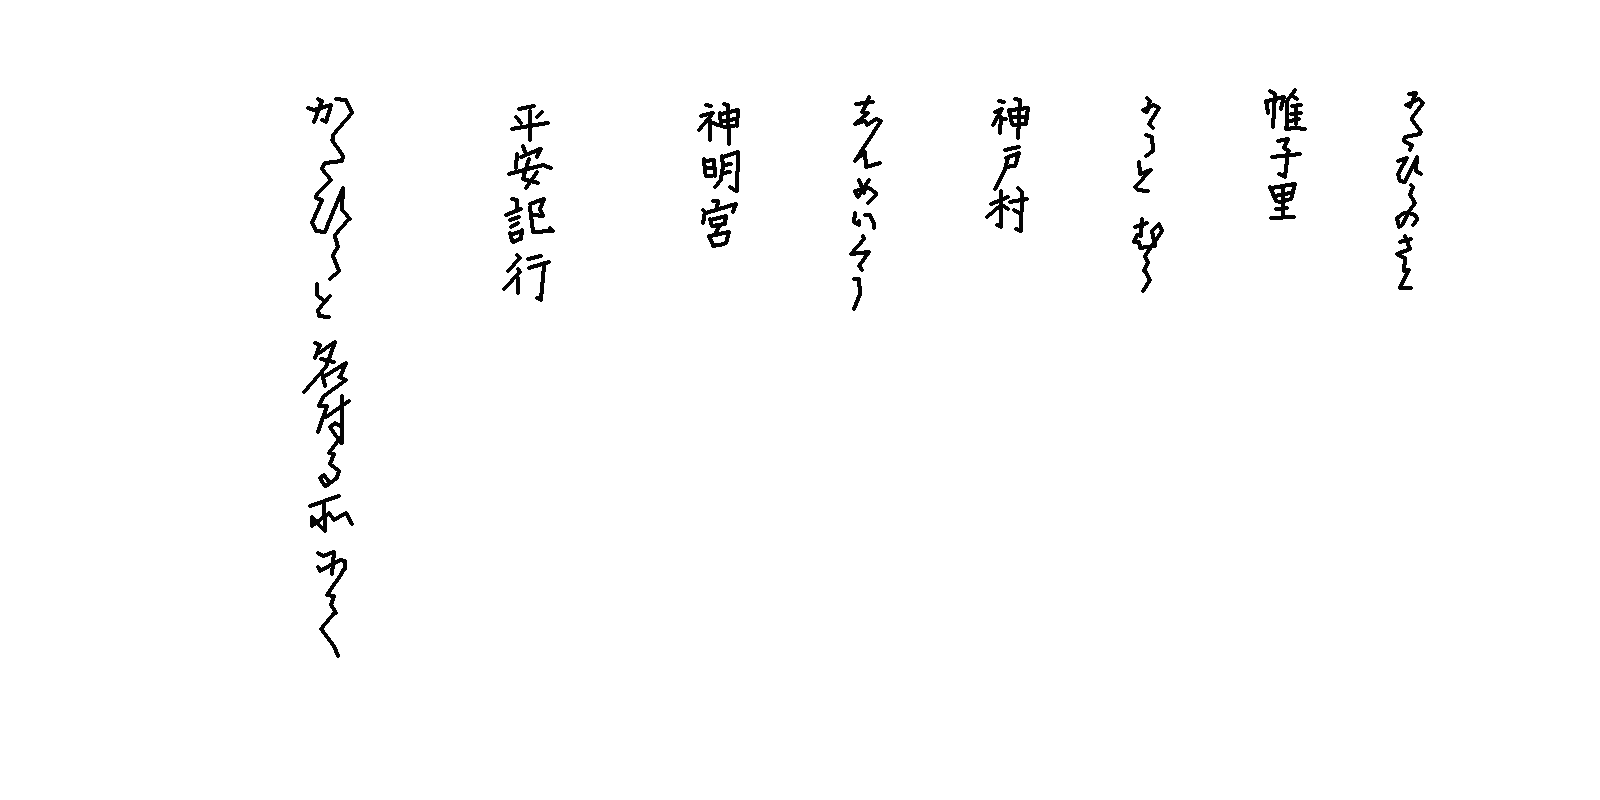 かたひらのさと
帷子里
かうとむら
神戸村
志んめいくう
神明宮
平安記行
かたひらと名付る所にて